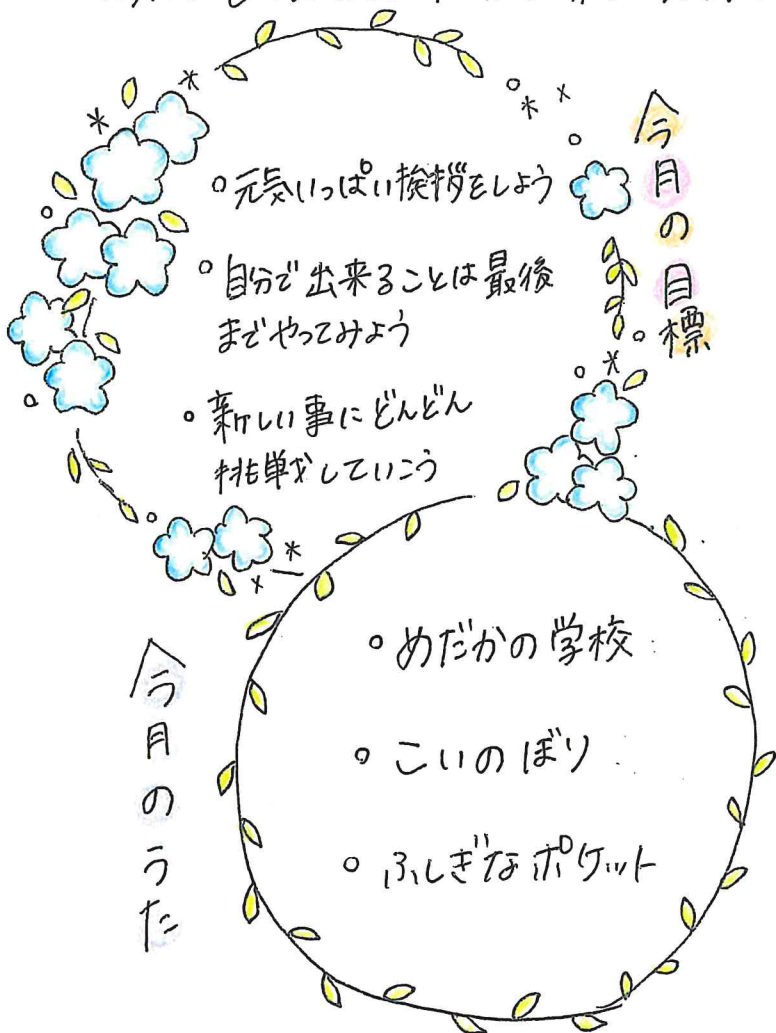 今月の目標
○元気いっぱい挨拶をしよう
○自分で出来ることは最後
までやってみよう
○新しい事にどんどん
挑戦していこう
今月のうた
○めだかの学校
○こいのぼり
○ふしぎなポケット